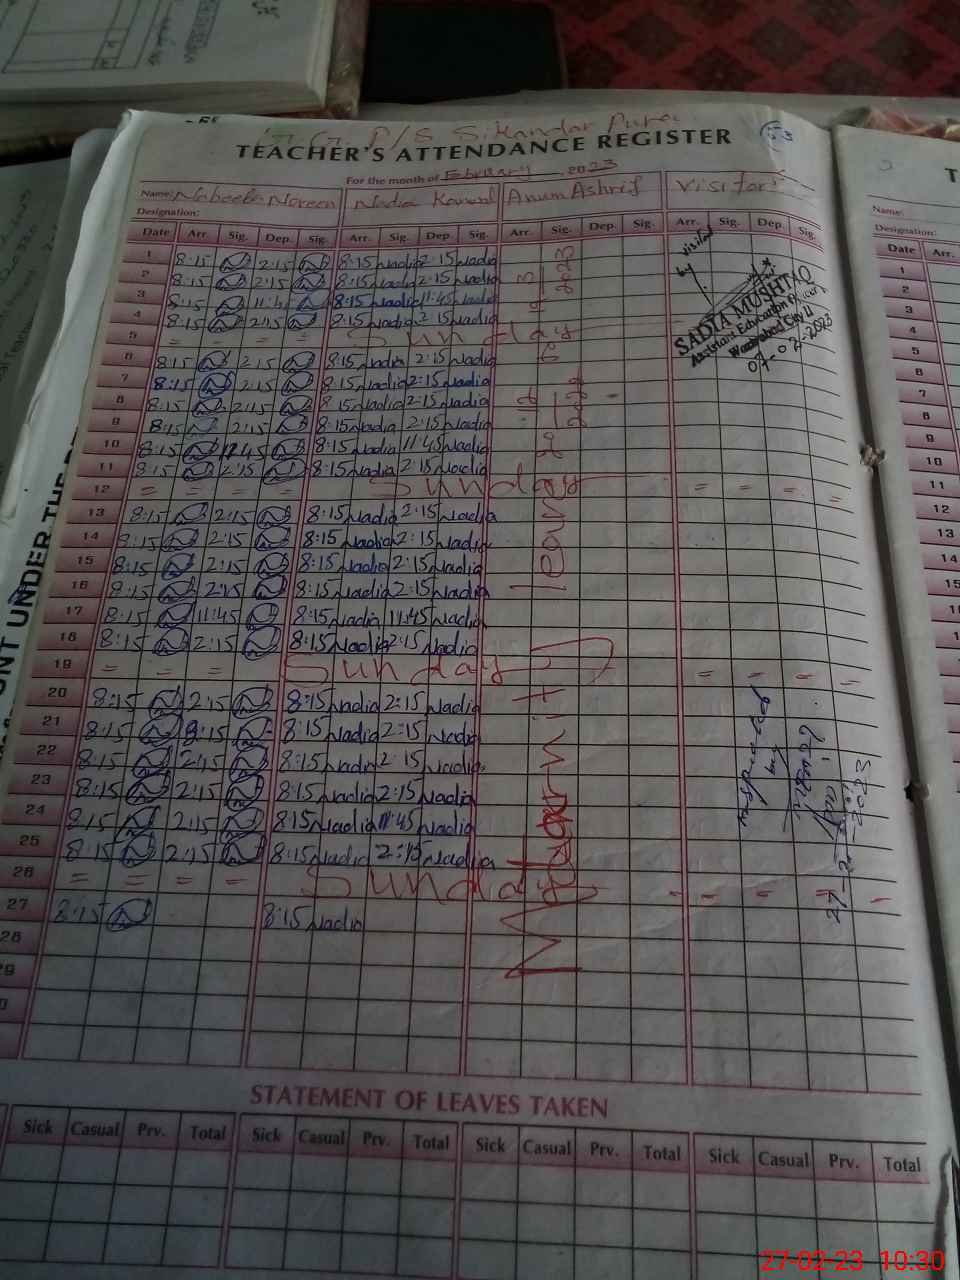 G. G. P/S Sikandar Pura
TEACHER'S ATTENDANCE REGISTER
For the month of February 2023
Name: Nabeela Noreen Nadia Kanwal Anum Ashrif Visitor:
Designation:
Date Arr. Sig. Dep. Sig. Arr. Sig. Dep. Sig. Arr. Sig. Dep. Sig. Arr. Sig. Dep. Sig.
1 8:15 2:15 8:15 Nadia 2:15 Nadia
2 8:15 2:15 8:15 Nadia 2:15 Nadia
3 8:15 11:45 8:15 Nadia 11:45 Nadia
4 8:15 2:15 8:15 Nadia 2:15 Nadia
5 = = = = Sunday
6 8:15 2:15 8:15 Nadia 2:15 Nadia
7 8:15 2:15 8:15 Nadia 2:15 Nadia
8 8:15 2:15 8:15 Nadia 2:15 Nadia
9 8:15 2:15 8:15 Nadia 2:15 Nadia
10 8:15 11:45 8:15 Nadia 11:45 Nadia
11 8:15 2:15 8:15 Nadia 2:15 Nadia
12 = = = = Sunday = = = =
13 8:15 2:15 8:15 Nadia 2:15 Nadia
14 8:15 2:15 8:15 Nadia 2:15 Nadia
15 8:15 2:15 8:15 Nadia 2:15 Nadia
16 8:15 2:15 8:15 Nadia 2:15 Nadia
17 8:15 11:45 8:15 Nadia 11:45 Nadia
18 8:15 2:15 8:15 Nadia 2:15 Nadia
19 = = = Sunday = = = =
20 8:15 2:15 8:15 Nadia 2:15 Nadia
21 8:15 8:15 Nadia 2:15 Nadia
22 8:15 2:15 8:15 Nadia 2:15 Nadia
23 8:15 2:15 8:15 Nadia 2:15 Nadia
24 8:15 2:15 8:15 Nadia 11:45 Nadia
25 8:15 2:15 8:15 Nadia 2:15 Nadia
26 = = = = Sunday = = = =
27 8:15 8:15 Nadia
28
29
Maternity leave
visited
by
SADIA MUSHTAQ
Assistant Education Officer
Wazirabad City II
07-02-2023
Inspected
by
27-2-2023
STATEMENT OF LEAVES TAKEN
Sick Casual Prv. Total Sick Casual Prv. Total Sick Casual Prv. Total Sick Casual Prv. Total
Name:
Designation:
Date Arr.
1
2
3
4
5
6
7
8
9
10
11
12
13
14
15
16
17
18
19
20
27-02-23 10:30